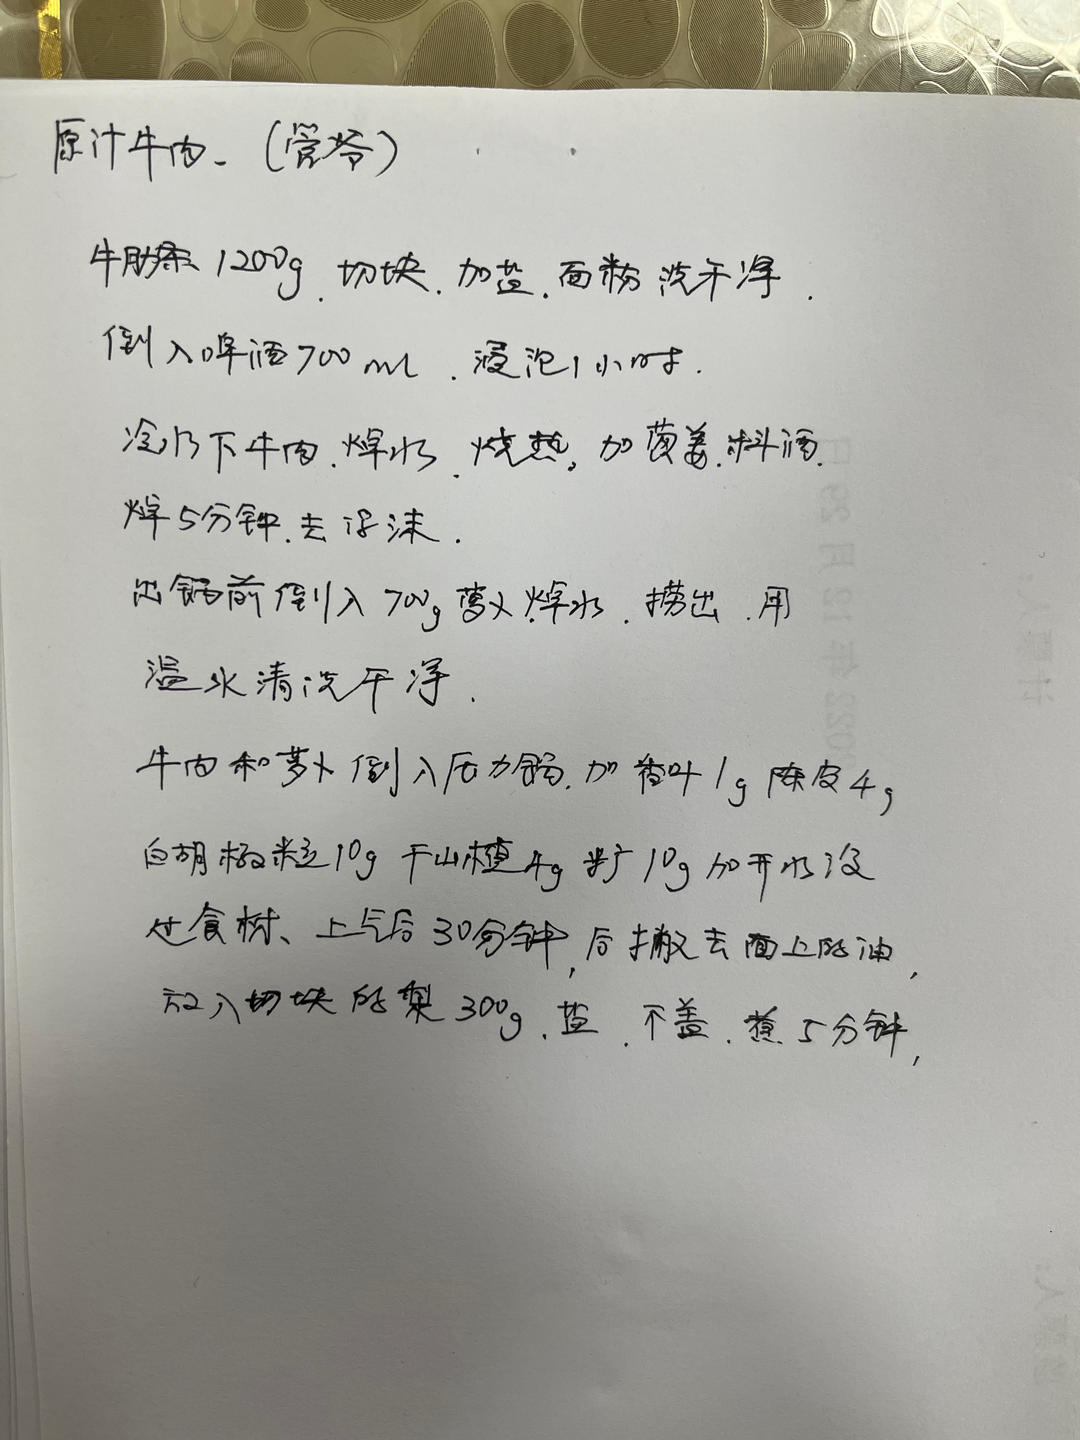 原汁牛肉. (管爷)
牛肋条 1200g. 切块. 加盐. 面粉 洗干净.
倒入啤酒 700 ml. 浸泡 1 小时.
冷水下牛肉. 焯水. 烧热, 加葱姜. 料酒.
焯 5 分钟. 去浮沫.
出锅前倒入 700g 萝卜 焯水. 捞出. 用
温水清洗干净.
牛肉和萝卜倒入压力锅. 加香叶 1g 陈皮 4g
白胡椒粒 10g 干山楂 4g 10g 加开水没
过食材、上气后 30分钟, 后撇去面上的油,
放入切块的梨 300g. 盐. 不盖. 煮 5 分钟,